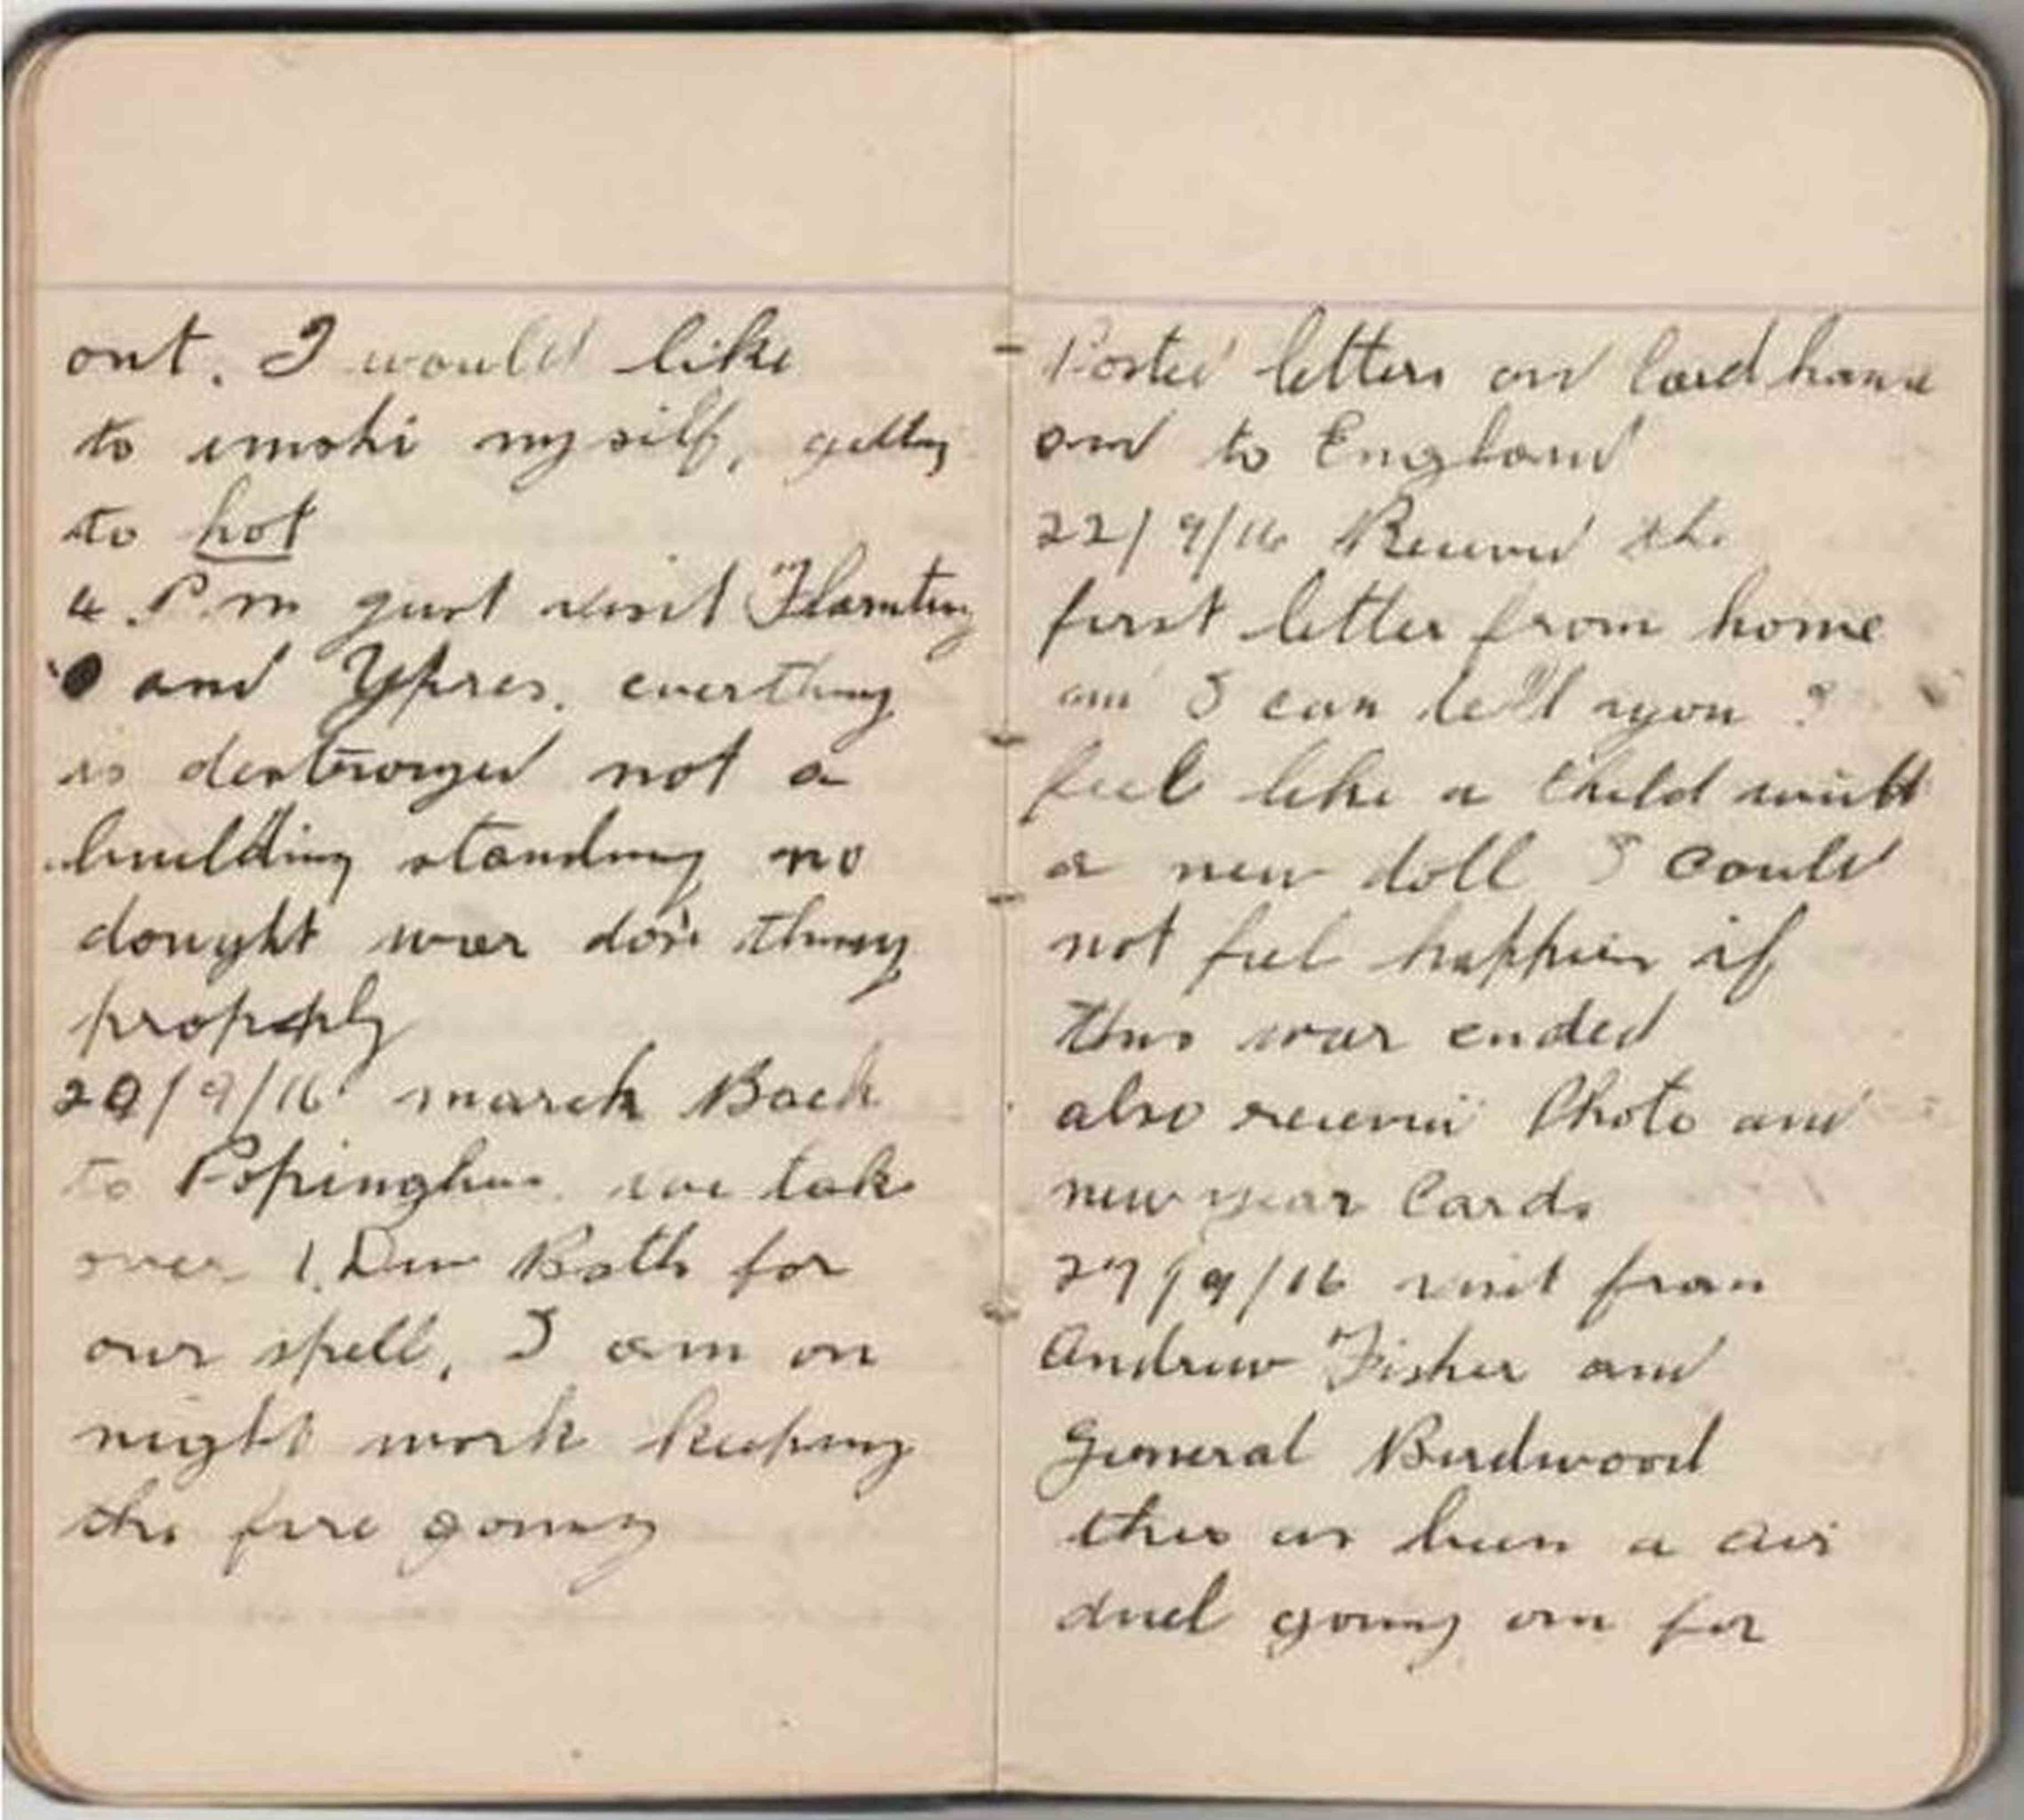 out. I would like
to smoke my self, getting
to hot
4 P.m just visit Flamting
and Ypres. everthing
is destroryed not a
buillding standing no
dought war dose things
properly
20/9/16 march Back
to Popinghue we take
over 1. Div Bath for
our spell, I am on
night work keeping
the fire going
Posted letters and Card home
and to England
22/9/16 Received the
first letter from home
and I can tell you I
feel like a child with
a new doll I could
not feel happier if
this war ended
also received Photo and
new year Cards
27/9/16 visit from
Andrew Fisher and
General Birdwood
ther as been a air
duel going on for